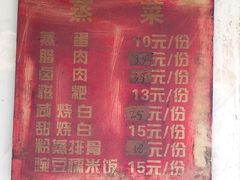 蒸 菜
蒸 蛋 10元/份
腊 肉 元/份
卤 肉 元/份
糍 粑 13元/份
咸 烧 白 15元/份
甜 烧 白 15元/份
粉 蒸 排 骨 元/份
豌豆糯米饭 15元/份